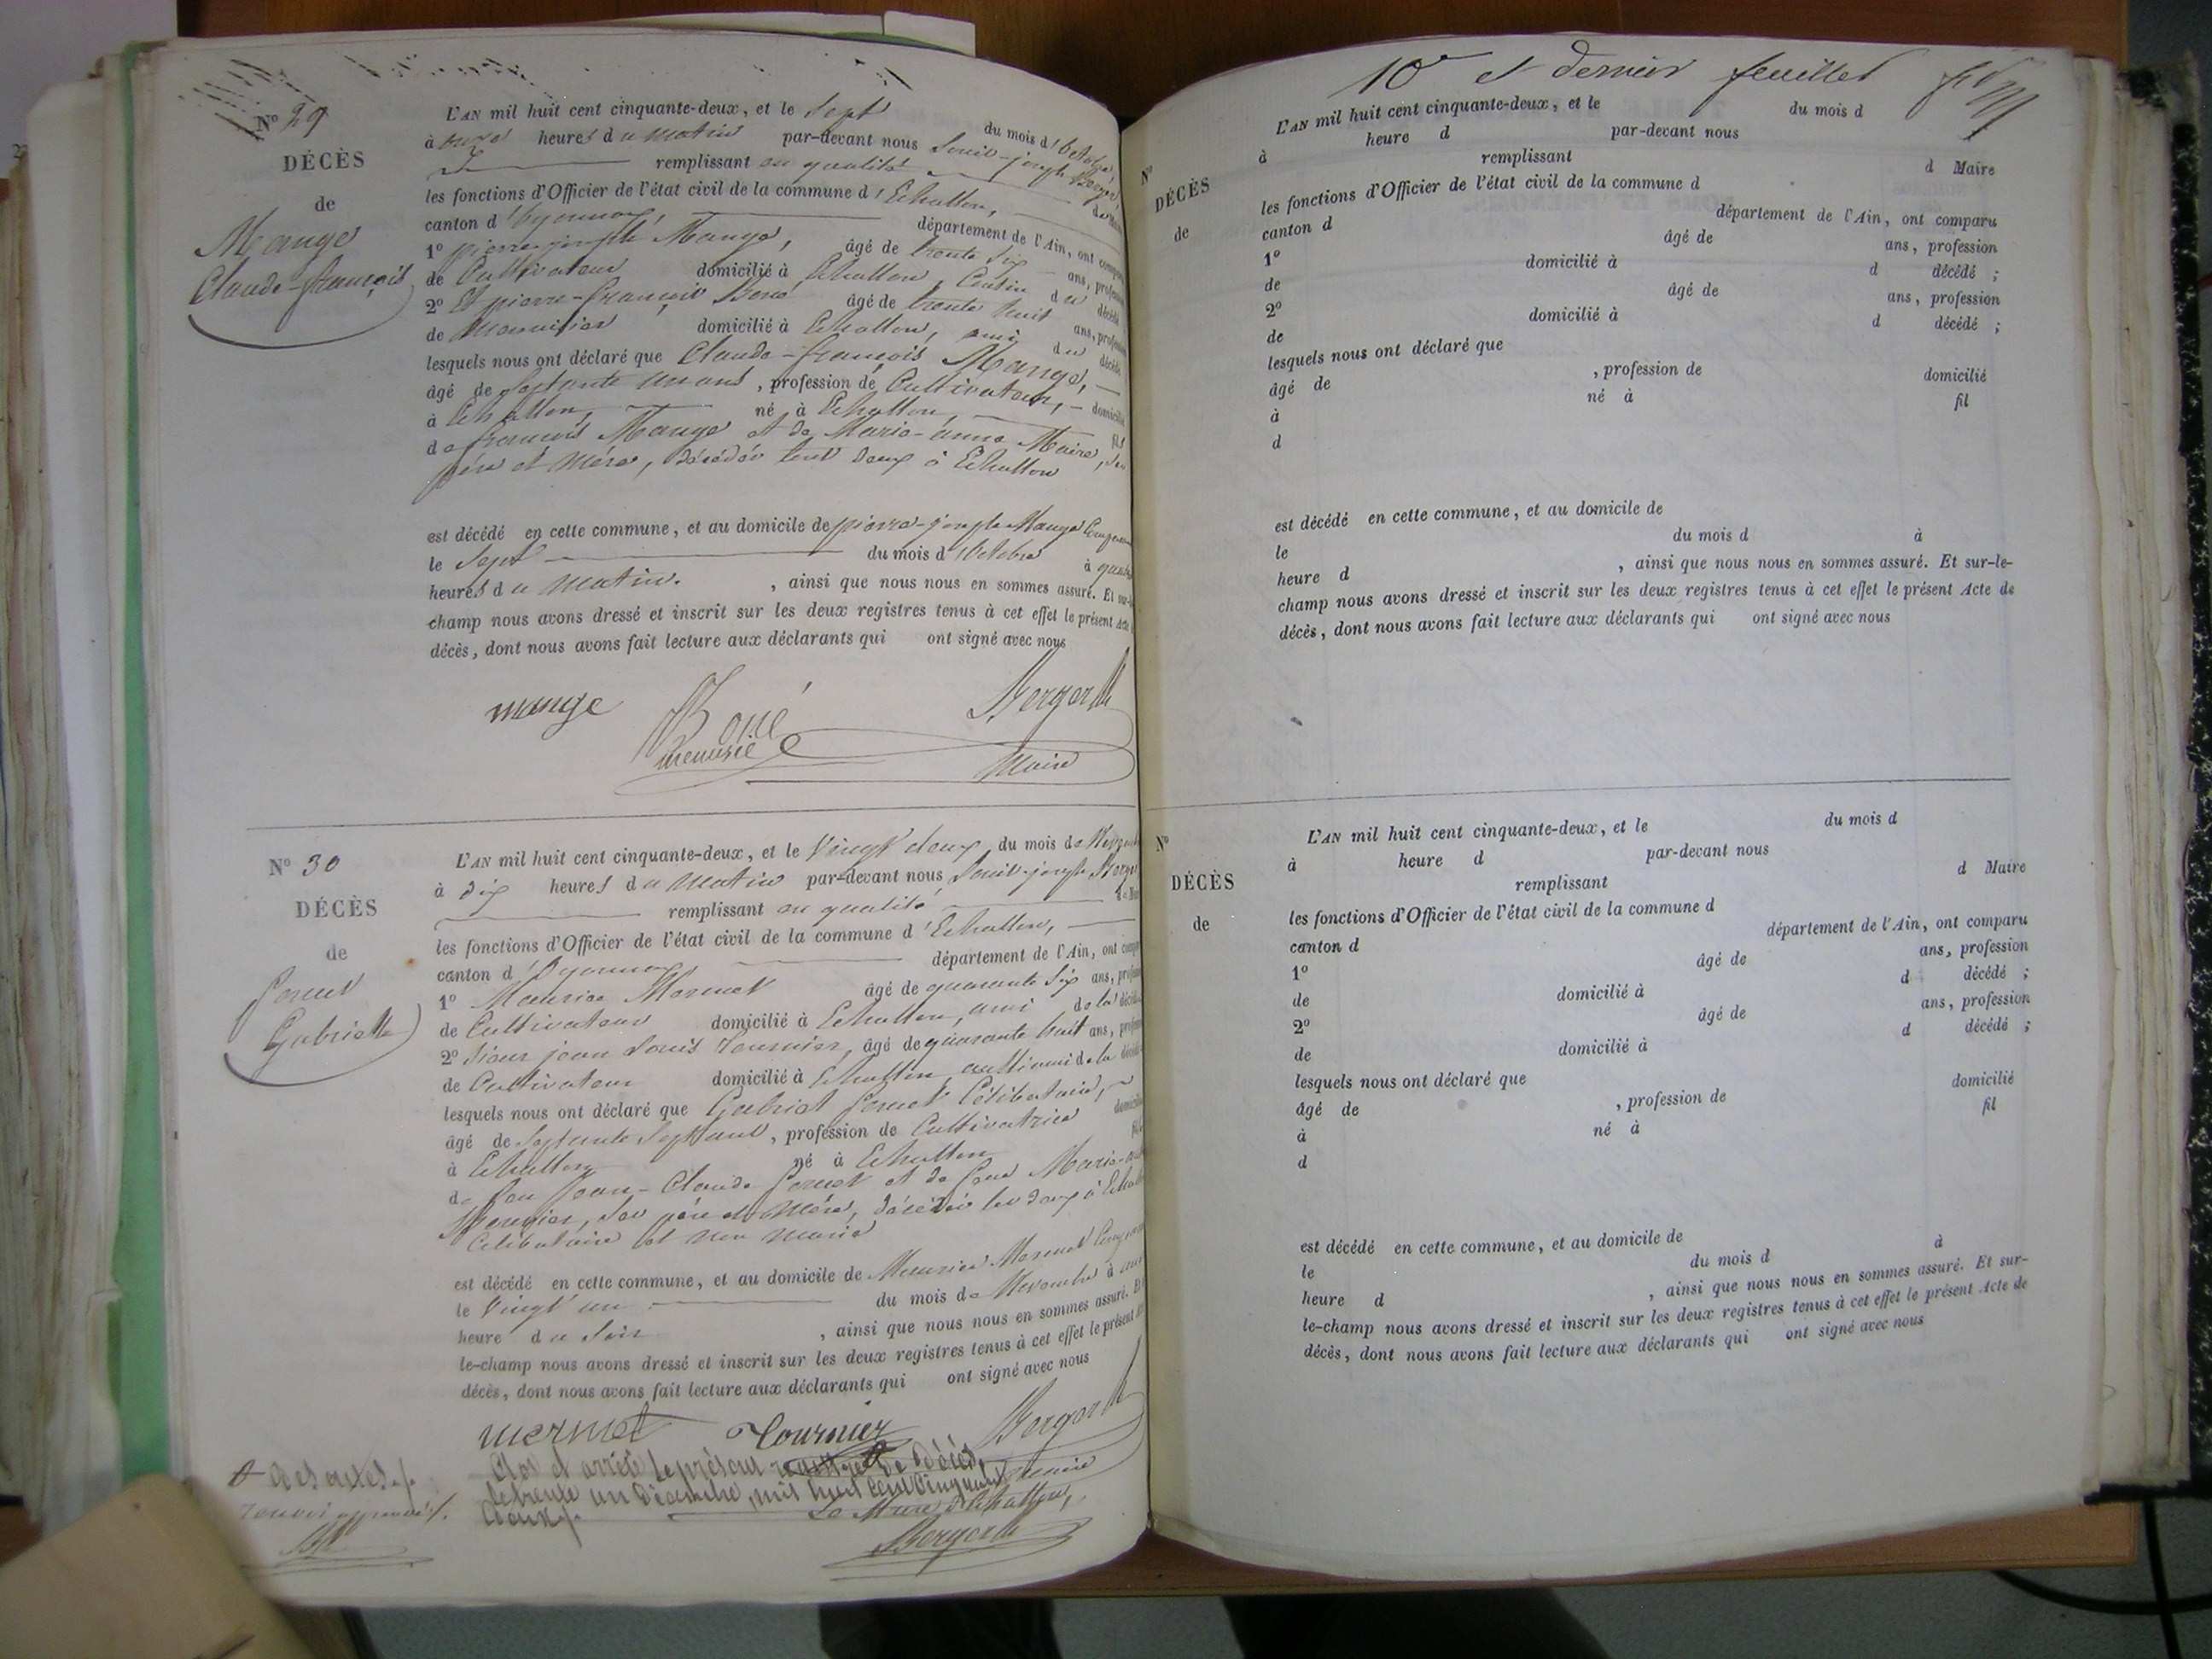 N° 29
DÉCÈS
de
Mange
Claude-françois
L'AN mil huit cent cinquante-deux, et le Sept du mois d'Octobre,
à onze heures du matin par-devant nous Louis-joseph Berger
remplissant en qualité de Maire
les fonctions d'Officier de l'état civil de la commune d'Echallon,
canton d'Oyonnax département de l'Ain, ont comparu
1° pierre-joseph Mange, âgé de trente six ans, profession
de Cultivateur domicilié à Echallon, Cousin du décédé
2° Et pierre-françois Boné âgé de trente huit ans, profession
de Menuisier domicilié à Echallon, ami du décédé
lesquels nous ont déclaré que Claude-françois Mange,
âgé de septante un ans, profession de Cultivateur, domicilié
à Echallon, né à Echallon, fils
de françois Mange et de Marie-anne Maire, ses
père et Mère, décédés tout deux à Echallon
est décédé en cette commune, et au domicile de pierre-joseph Mange
le Sept du mois d'Octobre à
heures du Matin. , ainsi que nous nous en sommes assuré. Et sur-le-
champ nous avons dressé et inscrit sur les deux registres tenus à cet effet le présent Acte
décès, dont nous avons fait lecture aux déclarants qui ont signé avec nous
mange
Menuisie
Maire
N° 30
DÉCÈS
de
Gabrielle
L'AN mil huit cent cinquante-deux, et le Vingt deux du mois de
à dix heures du Matin par-devant nous Louis-joseph Berger
remplissant en qualité de Maire
les fonctions d'Officier de l'état civil de la commune d'Echallon,
canton d'Oyonnax département de l'Ain, ont comparu
1° Maurice Mermet âgé de quarante six ans, profession
de Cultivateur domicilié à Echallon, ami de la décédée
2° Sieur jean Louis Tournier, âgé de quarante huit ans, profession
de Cultivateur domicilié à Echallon, aussi ami de la décédée
lesquels nous ont déclaré que Célibataire,
âgé de Septante Sept ans, profession de Cultivatrice domicilié
à Echallon né à Echallon fille
de feu Jean-Claude et de feue Marie-
ses père et Mère, décédés les deux à Echallon
Célibataire et non marié
est décédé en cette commune, et au domicile de Maurice Mermet
le Vingt un du mois de Novembre à
heure du Soir , ainsi que nous nous en sommes assuré. Et
le-champ nous avons dressé et inscrit sur les deux registres tenus à cet effet le présent
décès, dont nous avons fait lecture aux déclarants qui ont signé avec nous
mermet Tournier
Clos et arrêté le présent registre de Décès,
le trente un Décembre, mil huit cent cinquante
deux
Le Maire d'Echallon,
des actes
10e et dernier feuillet
N°
DÉCÈS
de
L'AN mil huit cent cinquante-deux, et le du mois d
à heure d par-devant nous
remplissant d Maire
les fonctions d'Officier de l'état civil de la commune d
canton d département de l'Ain, ont comparu
1° âgé de ans, profession
de domicilié à d décédé ;
2° âgé de ans, profession
de domicilié à d décédé ;
lesquels nous ont déclaré que
âgé de , profession de domicilié
à né à fil
d
est décédé en cette commune, et au domicile de
le du mois d à
heure d , ainsi que nous nous en sommes assuré. Et sur-le-
champ nous avons dressé et inscrit sur les deux registres tenus à cet effet le présent Acte de
décès, dont nous avons fait lecture aux déclarants qui ont signé avec nous
N°
DÉCÈS
de
L'AN mil huit cent cinquante-deux, et le du mois d
à heure d par-devant nous
remplissant d Maire
les fonctions d'Officier de l'état civil de la commune d
canton d département de l'Ain, ont comparu
1° âgé de ans, profession
de domicilié à d décédé ;
2° âgé de ans, profession
de domicilié à d décédé ;
lesquels nous ont déclaré que
âgé de , profession de domicilié
à né à fil
d
est décédé en cette commune, et au domicile de
le du mois d à
heure d , ainsi que nous nous en sommes assuré. Et sur-
le-champ nous avons dressé et inscrit sur les deux registres tenus à cet effet le présent Acte de
décès, dont nous avons fait lecture aux déclarants qui ont signé avec nous